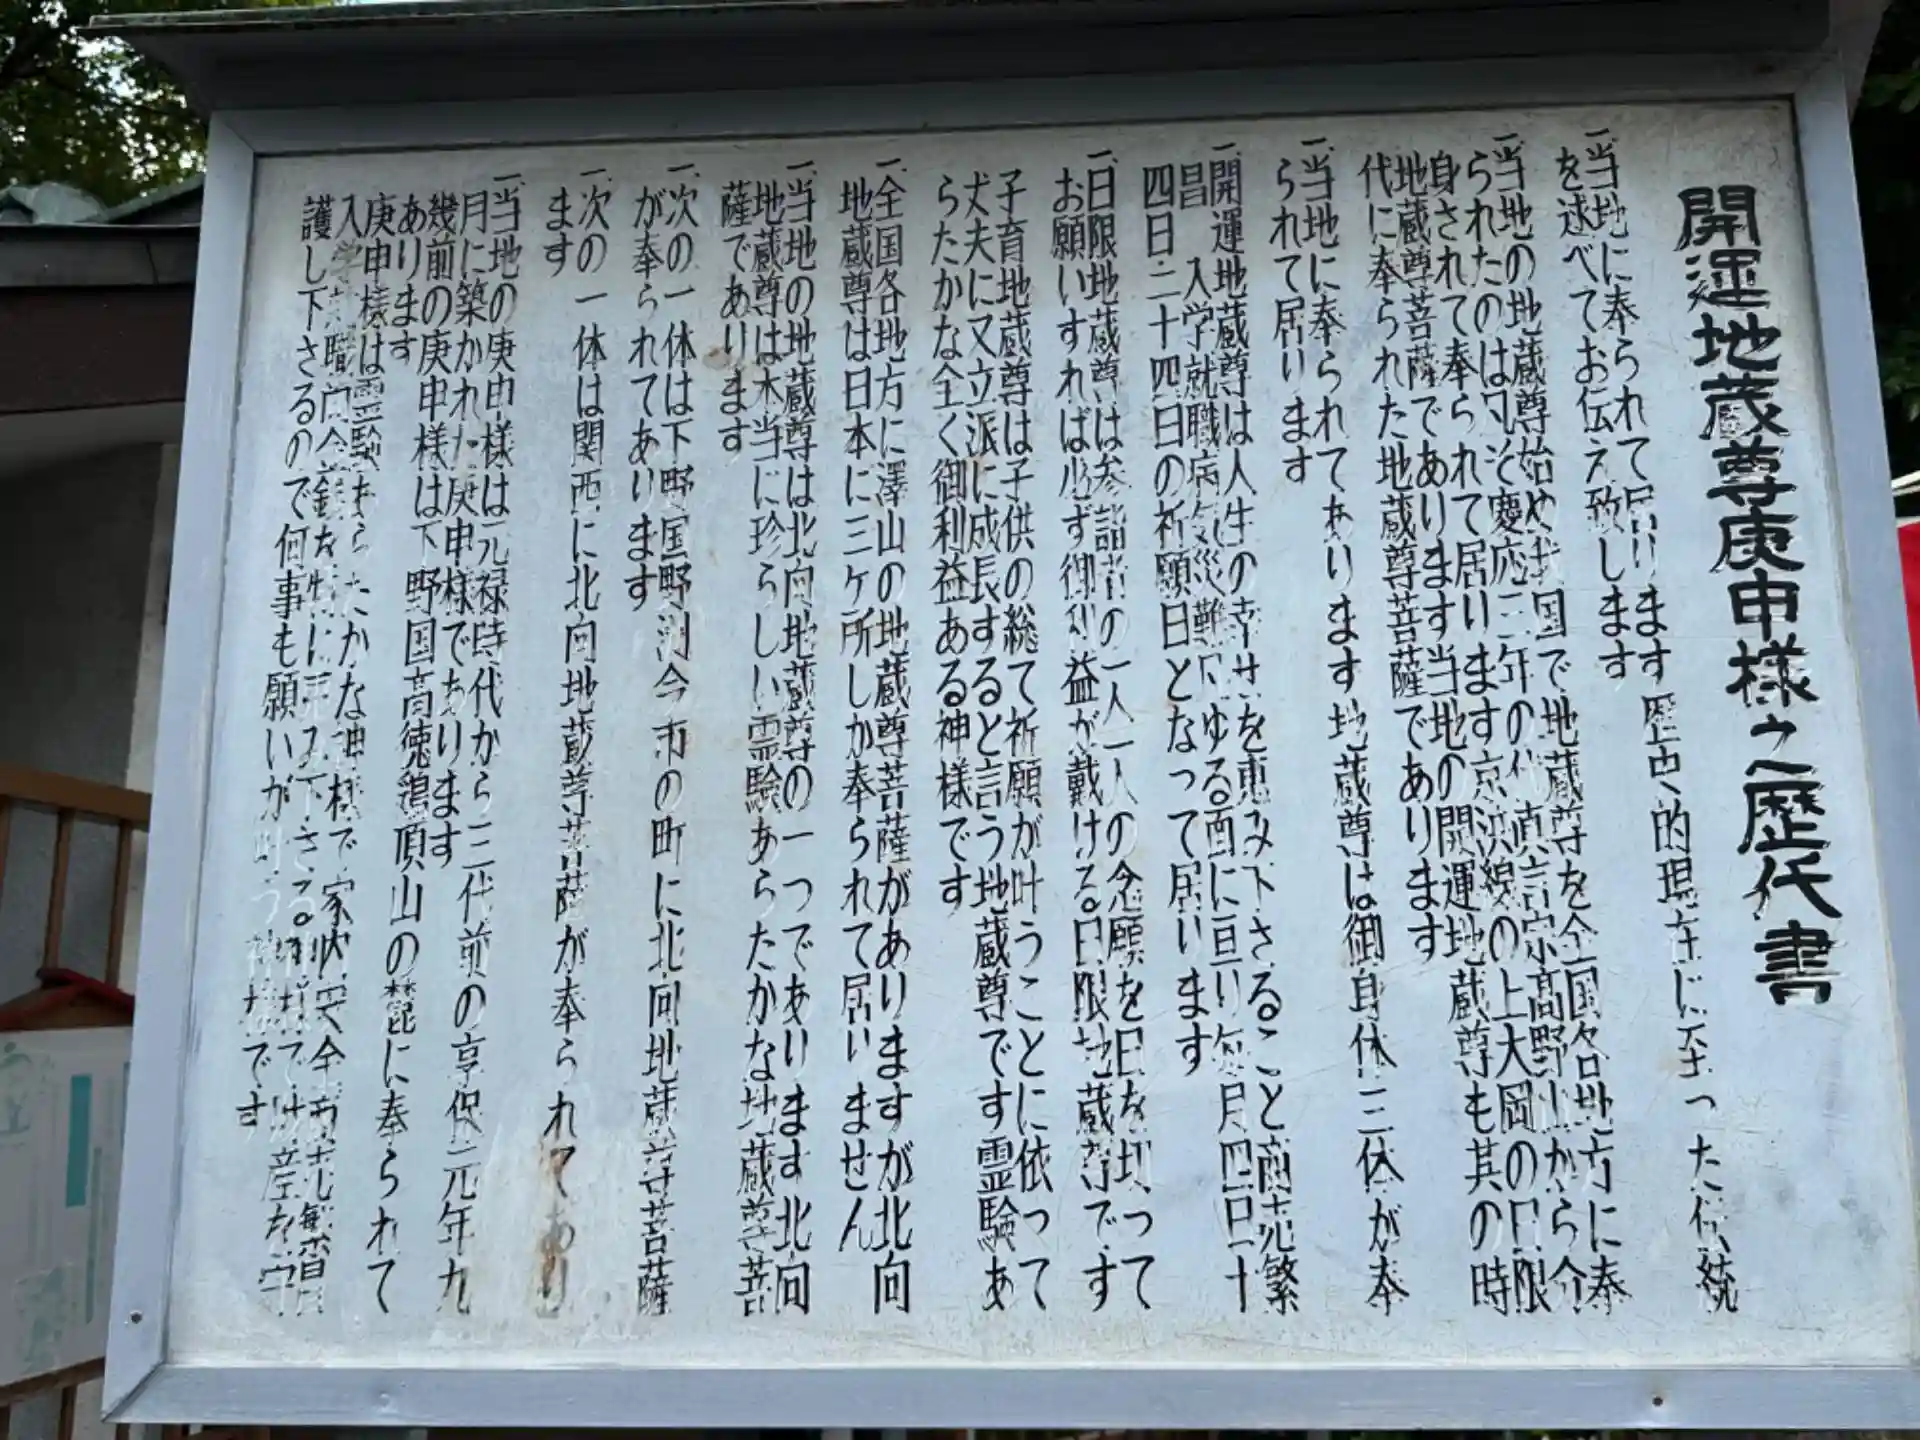 開運地蔵尊庚申様之歴代書
一、当地に奉られて居ります歴史的現在に至った伝統
を述べてお伝え致します
一、当地の地蔵尊始め我国で地蔵尊を全国各地方に奉
られたのは凡そ慶応三年の代真言宗高野山から介
身されて奉られて居ります京浜線の上大岡の日限
地蔵尊菩薩であります当地の開運地蔵尊も其の時
代に奉られた地蔵尊菩薩であります
一、当地に奉られてあります地蔵尊は御身体三体が奉
られて居ります
一、開運地蔵尊は人生の幸せを恵み下さること商売繁
昌 入学就職病気災難凡ゆる面に亘り毎月四日十
四日二十四日の祈願日となって居ります
一、日限地蔵尊は参詣者の一人一人の念願を日を切って
お願いすれば必ず御利益が戴ける日限地蔵尊です
子育地蔵尊は子供の総て祈願が叶うことに依って
丈夫に又立派に成長すると言う地蔵尊です霊験あ
らたかな全く御利益ある神様です
一、全国各地方に澤山の地蔵尊菩薩がありますが北向
地蔵尊は日本に三ケ所しか奉られて居いません
一、当地の地蔵尊は北向地蔵尊の一つであります北向
地蔵尊は本当に珍らしい霊験あらたかな地蔵尊菩
薩であります
一、次の一体は下野国野州今市の町に北向地蔵尊菩薩
が奉られてあります
一、次の一体は関西に北向地蔵尊菩薩が奉られてあり
ます
一、当地の庚申様は元禄時代から三代前の享保元年九
月に築かれた庚申様であります
幾前の庚申様は下野国高徳鶏頂山の麓に奉られて
あります
庚申様は霊験あらたかな神様で家内安全商売繁昌
入学就職向金銭を特に恵み下さる神様でお産を守
護し下さるので何事も願いが叶う神様です